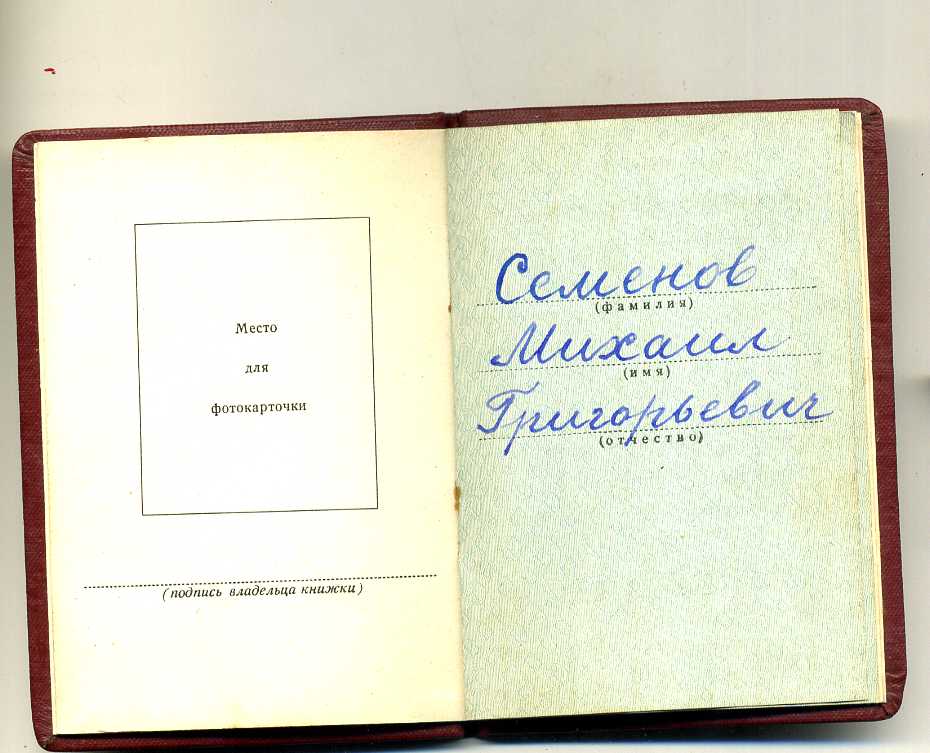 Место
для
фотокарточки
(подпись владельца книжки)
Семенов
(фамилия)
Михаил
(имя)
Григорьевич
(отчество)